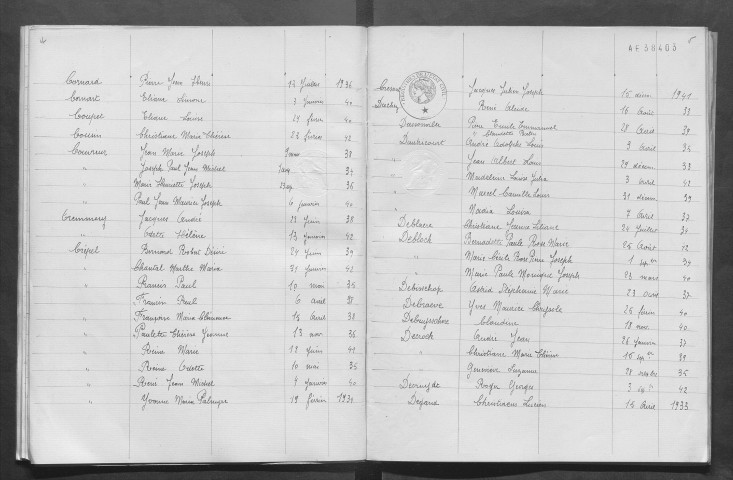 4
Cornard Pierre Jean Henri 12 Juillet 1936
Cornart Eliane Simone 3 Janvier 40
Coupet Eliane Louise 24 février 40
Cousin Christiane Marie Thérèse 23 février 42
Couvreur Jean Marie Joseph 38
" Joseph Paul Jean Michel 34
" Marie Henriette Josèphe 36
" Paul Jean Maurice Joseph 6 Janvier 40
Cremmery Jacques André 22 Juin 38
" Odette Hélène 13 Janvier 42
Crépel Bernard Robert Désiré 24 Juin 39
" Chantal Marthe Maria 31 Janvier 42
" Francis Paul 10 mai 35
" Francis Paul 6 avril 38
" Françoise Marie 15 Avril 38
" Paulette Thérèse Yvonne 13 nov 36
" Reine Marie 12 Juin 41
" Reine Odette 10 mai 35
" René Jean Michel 4 Janvier 40
" Yvonne Maria 19 février 1930
AF 50405
Jacques Julien Joseph 15 décem 1941
René 16 Avril 33
Pierre Emile Emmanuel 28 Avril 39
Dautricourt André Adolphe Louis 9 Avril 35
" Jean Albert Louis 29 décem 33
" Madeleine Louise Julia 3 avril 42
" Marcel Camille Louis 31 décem 39
" Nadia Louisa 7 Avril 37
Deblaere Christiane Jeanne Liliane 24 Juillet 34
Deblock Bernadette Paule Rose Marie 25 Août 42
" Marie Cécile Rose Joseph 1 37
" Marie Paule Monique Joseph 23 mars 40
Astrid Stéphanie Marie 23 avril 37
Debraeve Yves Maurice 26 février 40
Claudine 18 nov. 40
Decrock André Jean 26 Janvier 37
" Christiane Marie 15 39
Geneviève Suzanne 28 35
Roger Georges 3 42
Degand Christiaens Lucien 15 Avril 1933